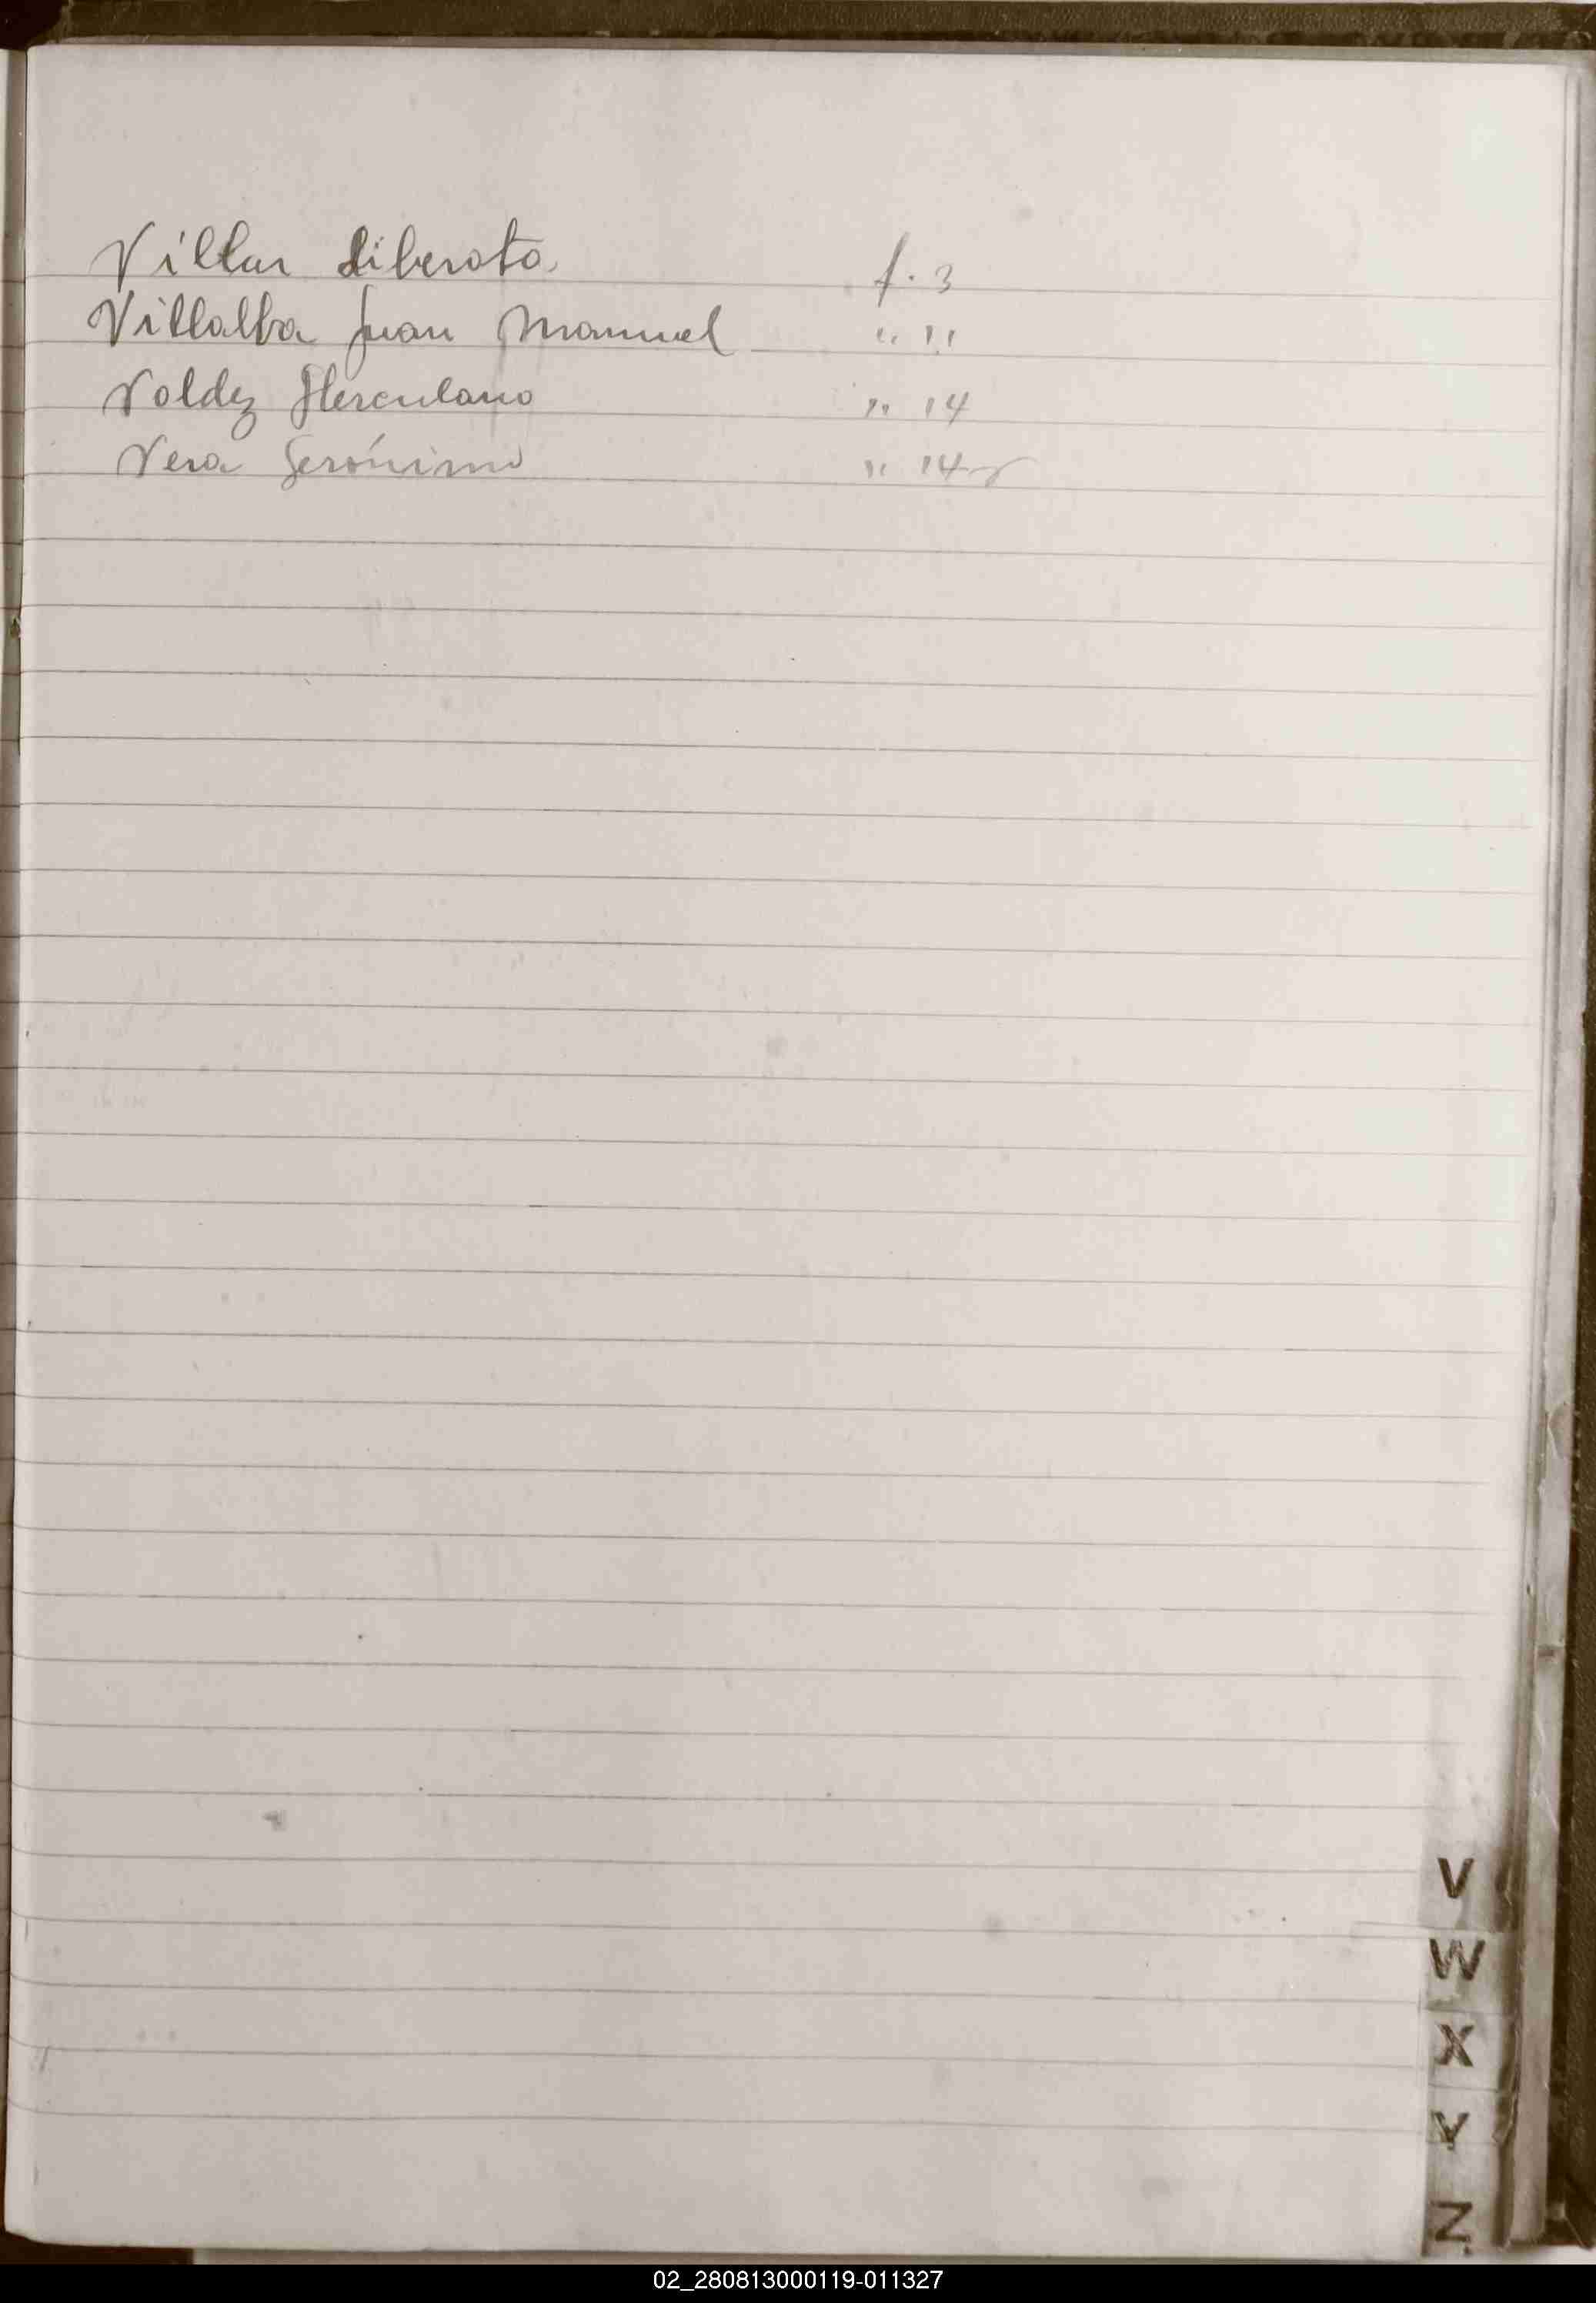 Villar Liberato. f. 3
Villalba Juan Manuel " 11
Valdez Herculano " 14
Vera Gerónimo " 14
V
W
X
Y
Z
02_280813000119-011327